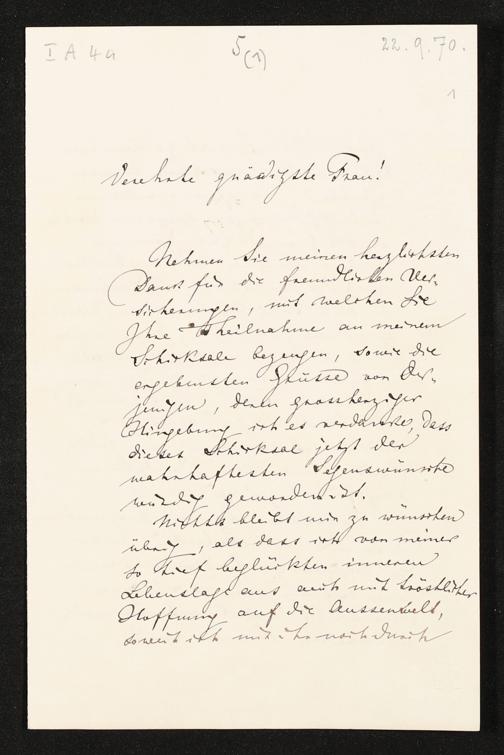 I A 4a
5 (1)
22.9.70.
1
Verehrte gnädigste Frau!
Nehmen Sie meinen herzlichsten
Dank für die freundlichen Ver-
sicherungen, mit welchen Sie
Ihre Theilnahme an meinem
Schicksale bezeugen, sowie die
ergebensten Grüsse von Der-
jenigen, deren grossherziger
Hingebung ich es verdanke, dass
dieses Schicksal jetzt der
wahrhaftesten Segenswünsche
würdig geworden ist.
Nichts bleibt mir zu wünschen
übrig, als dass ich von meiner
so tief beglückten inneren
Lebenslage aus auch mit tröstlicher
Hoffnung auf die Aussenwelt,
soweit ich mit ihr noch durch